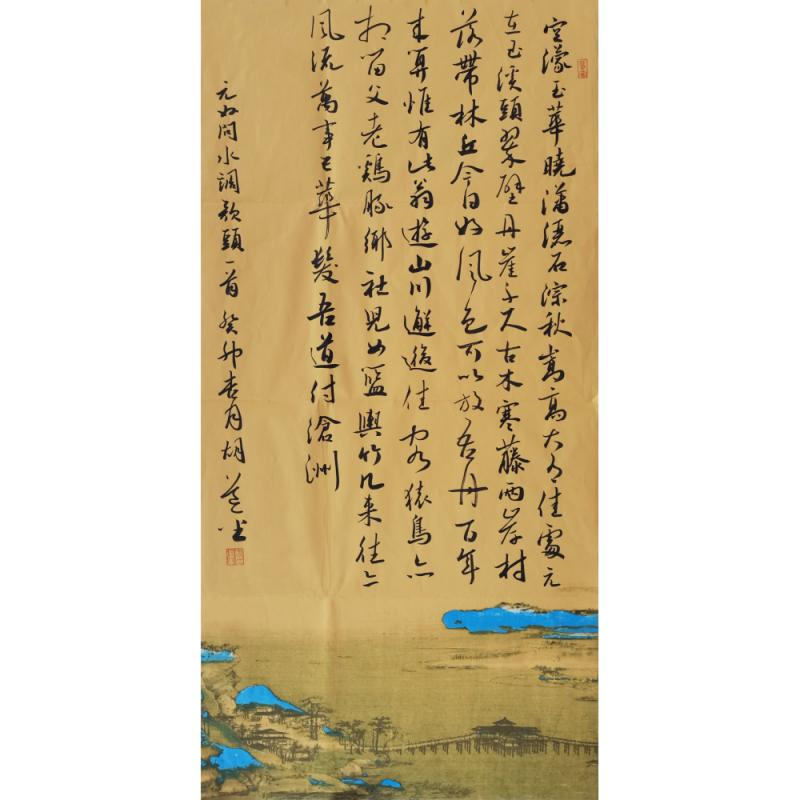 空濛玉華曉瀟灑石淙秋嵩高大有佳處元
在玉溪頭翠壁丹崖千丈古木寒藤兩岸村
落帶林丘今日好風色可以放吾舟百年
來算惟有此翁遊山川邂逅佳客猿鳥亦
相留父老鷄豚鄉社兒女籃輿竹几來往亦
風流萬事已華髮吾道付滄洲
元好問水調歌頭一首癸卯杏月胡